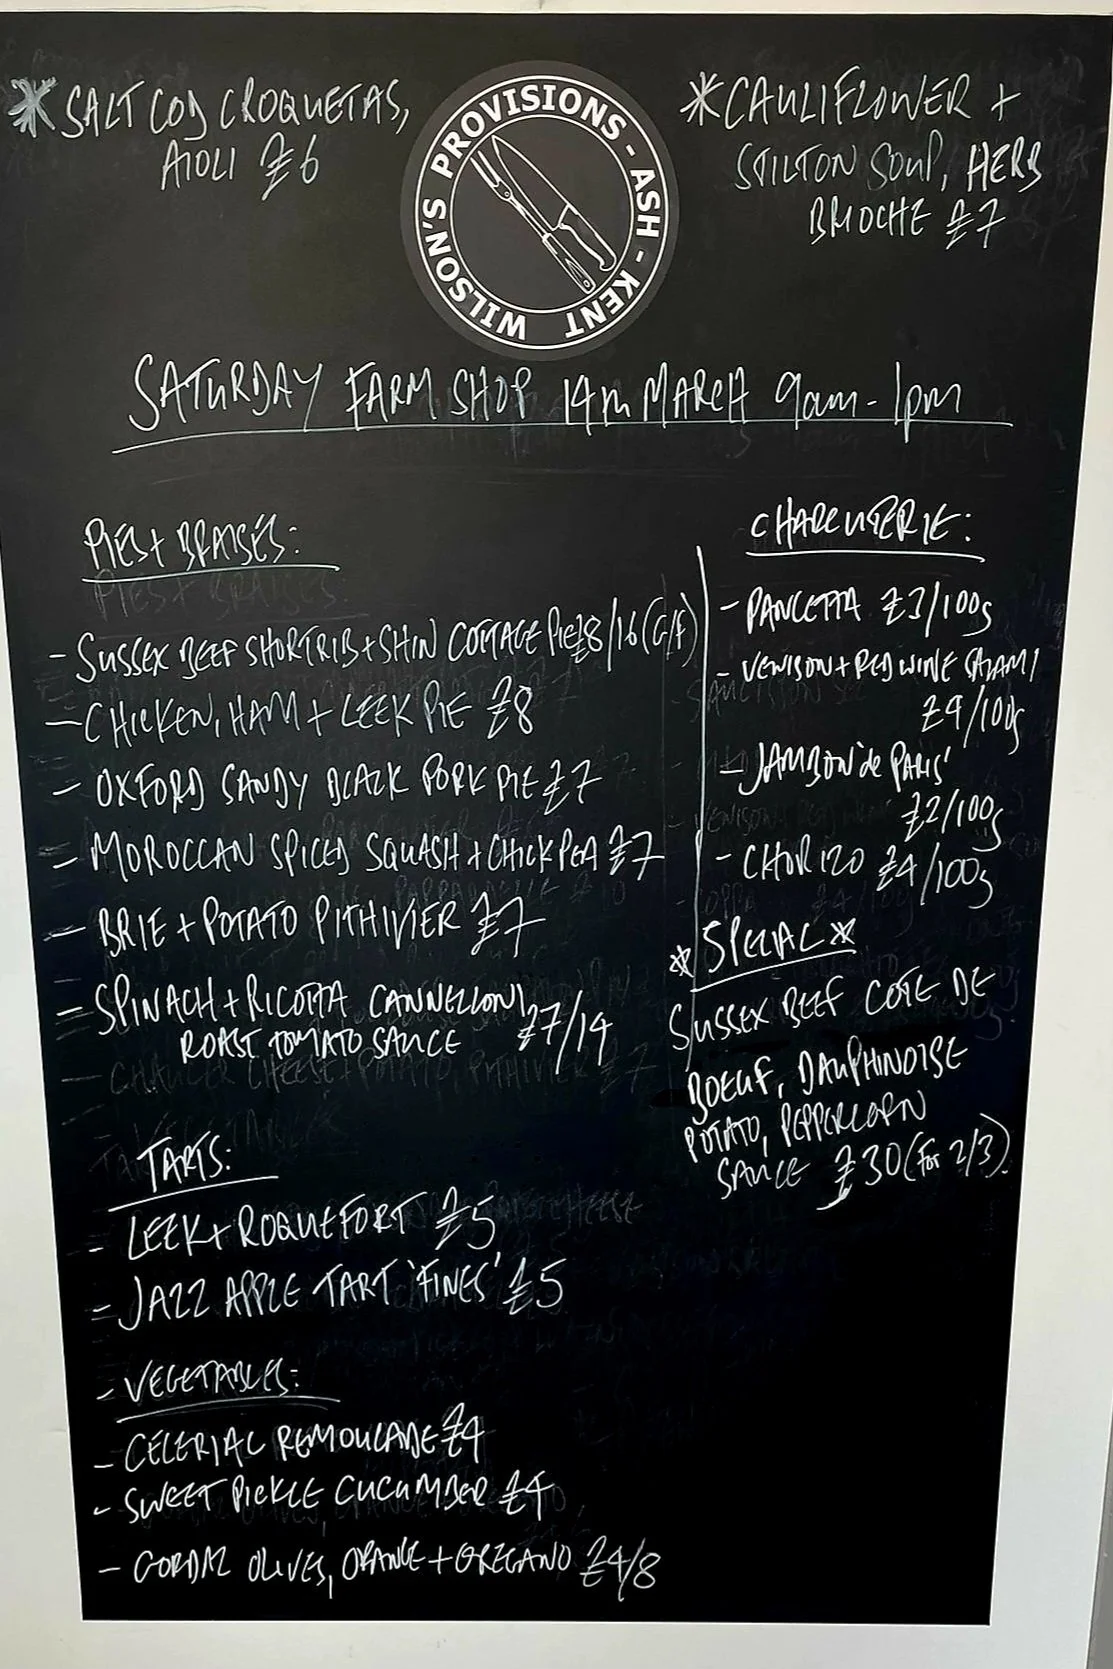 *SALT COD CROQUETAS,
AIOLI £6
WILSON'S PROVISIONS - ASH - KENT
*CAULIFLOWER +
STILTON SOUP, HERB
BRIOCHE £7
SATURDAY FARM SHOP 14TH MARCH 9am - 1pm
PIES + BRAISES:
- SUSSEX BEEF SHORTRIB + SHIN COTTAGE PIE £8/16 (G/F)
- CHICKEN, HAM + LEEK PIE £8
- OXFORD SANDY BLACK PORK PIE £7
- MOROCCAN SPICED SQUASH + CHICKPEA £7
- BRIE + POTATO PITHIVIER £7
- SPINACH + RICOTTA CANNELLONI
ROAST TOMATO SAUCE £7/14
TARTS:
- LEEK + ROQUEFORT £5
- JAZZ APPLE TART 'FINES' £5
- VEGETABLES:
- CELERIAC REMOULADE £4
- SWEET PICKLE CUCUMBER £4
- GORDAL OLIVES, ORANGE + OREGANO £4/8
CHARCUTERIE:
- PANCETTA £3/100g
- VENISON + RED WINE SALAMI
£4/100g
- JAMBON 'de PARIS'
£2/100g
- CHORIZO £4/100g
*SPECIAL*
SUSSEX BEEF COTE DE
BOEUF, DAUPHINOISE
POTATO, PEPPERCORN
SAUCE £30 (for 2/3)